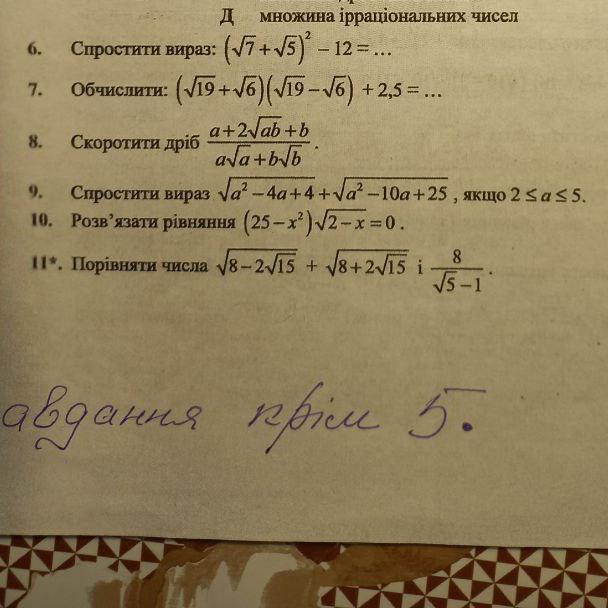 Д множина ірраціональних чисел
6. Спростити вираз: (√7+√5)² − 12 = ...
7. Обчислити: (√19+√6)(√19−√6) + 2,5 = ...
8. Скоротити дріб (a+2√ab+b)/(a√a+b√b).
9. Спростити вираз √(a²−4a+4)+√(a²−10a+25), якщо 2 ≤ a ≤ 5.
10. Розв’язати рівняння (25−x²)√(2−x)=0.
11*. Порівняти числа √(8−2√15) + √(8+2√15) і 8/(√5−1).
авдання крім 5.